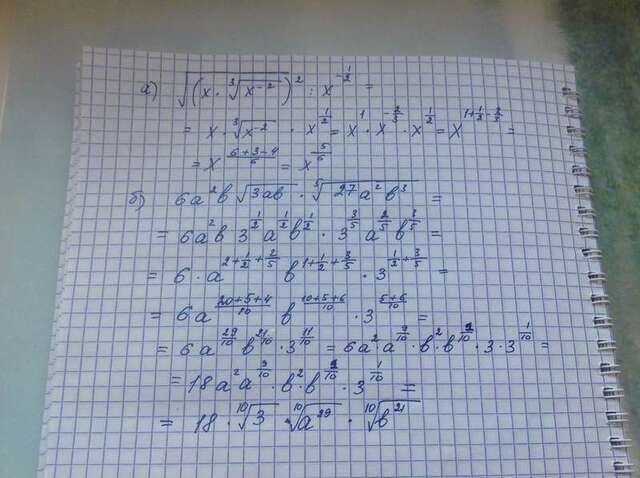 а) √(x · ³√x⁻²)² : x^(-1/2) =
= x · ³√x⁻² · x^(1/2) = x¹ · x^(-2/3) · x^(1/2) = x^(1+1/2-2/3) =
= x^((6+3-4)/6) = x^(5/6)
б) 6a²b √3ab · ⁵√27a²b³ =
= 6a²b 3^(1/2) a^(1/2) b^(1/2) · 3^(3/5) a^(2/5) b^(3/5) =
= 6 · a^(2+1/2+2/5) b^(1+1/2+3/5) · 3^(1/2+3/5) =
= 6a^((20+5+4)/10) b^((10+5+6)/10) · 3^((5+6)/10) =
= 6a^(29/10) b^(21/10) · 3^(11/10) = 6a² · a^(9/10) · b² · b · 3 · 3^(1/10) =
= 18a² a^(9/10) · b² · b · 3^(1/10) =
= 18 · ¹⁰√3 · ¹⁰√a²⁹ · ¹⁰√b²¹